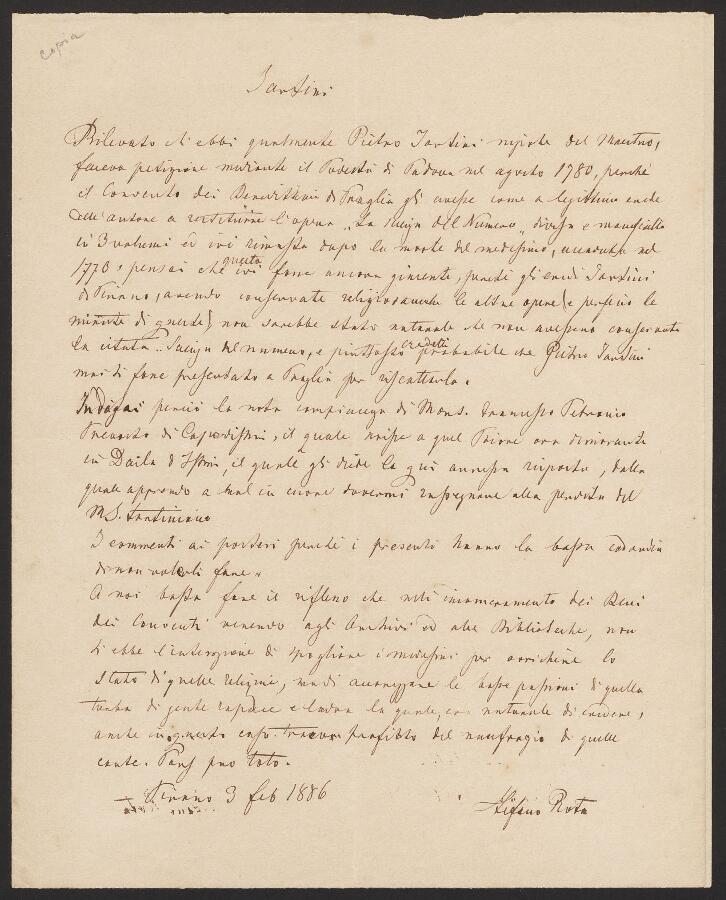 copia
Tartini
Rilevato ch'ebbi qualmente Pietro Tartini nipote del Maestro,
faceva petizione mediante il Podestà di Padova nel agosto 1780, perchè
il Convento dei Benedittini di Praglia gli avesse come a legittimo erede
dell'autore a restituire l'opera „La Scienza dell Numero„ divisa e manoscritta
in 3 volumi ed ivi rimasta dopo la morte del medesimo, accaduta nel
1770, pensai che questa ivi fosse ancora giacente, perchè gli eredi Tartini
di Pirano, avendo conservate religiosamente le altre opere (e persino le
minute di queste) non sarebbe stato naturale che non avessero conservato
la citata „Scienza del numero, e piuttosto credetti probabile che Pietro Tartini
mai si fosse presentato a Praglia per riscattarla.
Indagai perciò la nota compiacenza di Mons. Francesco Petronio
Preposito di Capodistria, il quale scrisse a quel Priore ora dimorante
in Daila d'Istria, il quale gli diede la qui annessa risposta, dalla
quale apprendo a mal in cuore dovermi rassegnare alla perdita del
M.S. tartiniano
I commenti ai posteri perchè i presenti hanno la bassa codardia
di non volerli fare.
A noi basta fare il riflesso che nell'incameramento dei Beni
dei Conventi venendo agli Archivi ed alle Biblioteche, non
si ebbe l'intenzione di spogliare i medesimi per arrichire lo
stato di quelle reliquie, ma di accarezzare le basse passioni di quella
turba di gente rapace e ladra la quale, con naturale di credere,
anche in questo caso trasse profitto del naufragio di quelle
carte. Pens pro toto.
Pirano 3 feb 1886
Stefano Rota